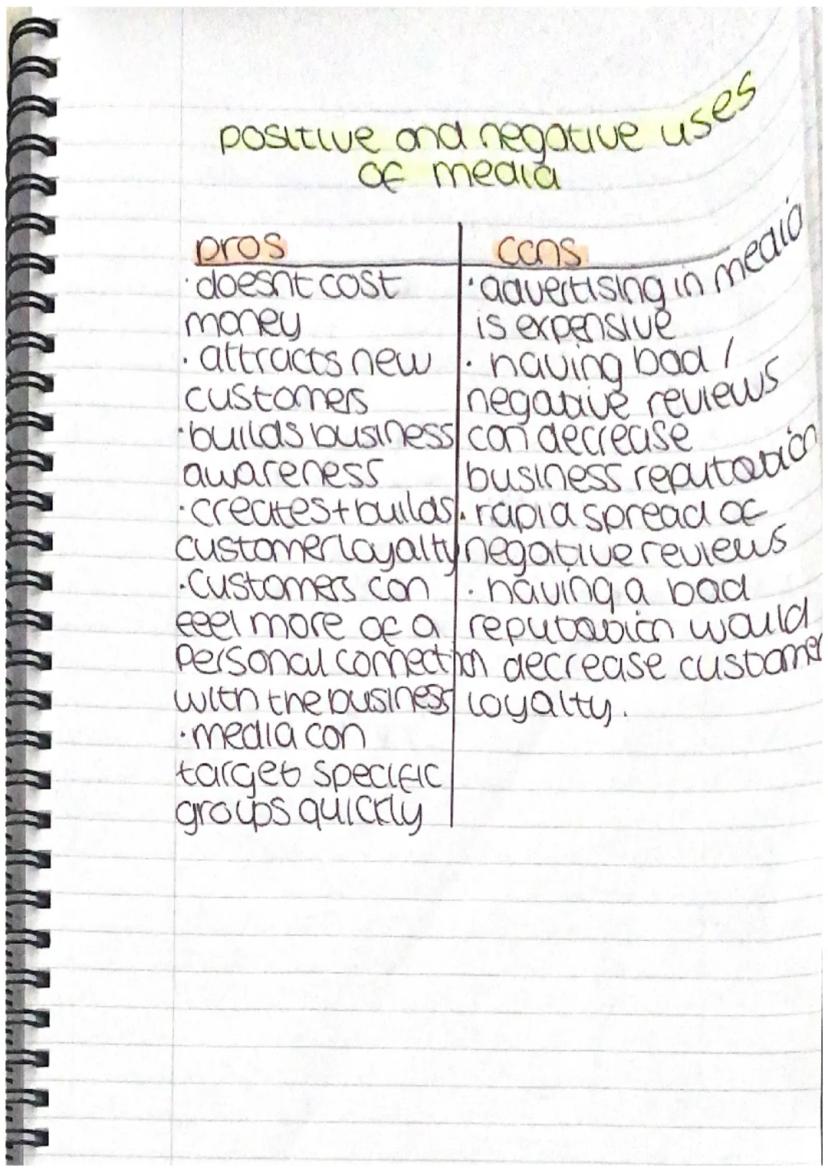 positive and negative uses
of media
pros
· doesnt cost
money
· attracts new
customers
· builds business
awareness
· creates + builds
customer loyalty
· customers can
feel more of a
personal connection
with the business
· media can
target specific
groups quickly
cons
· advertising in media
is expensive
· having bad /
negative reviews
can decrease
business reputation
· rapid spread of
negative reviews
· having a bad
reputation would
decrease customer
loyalty.